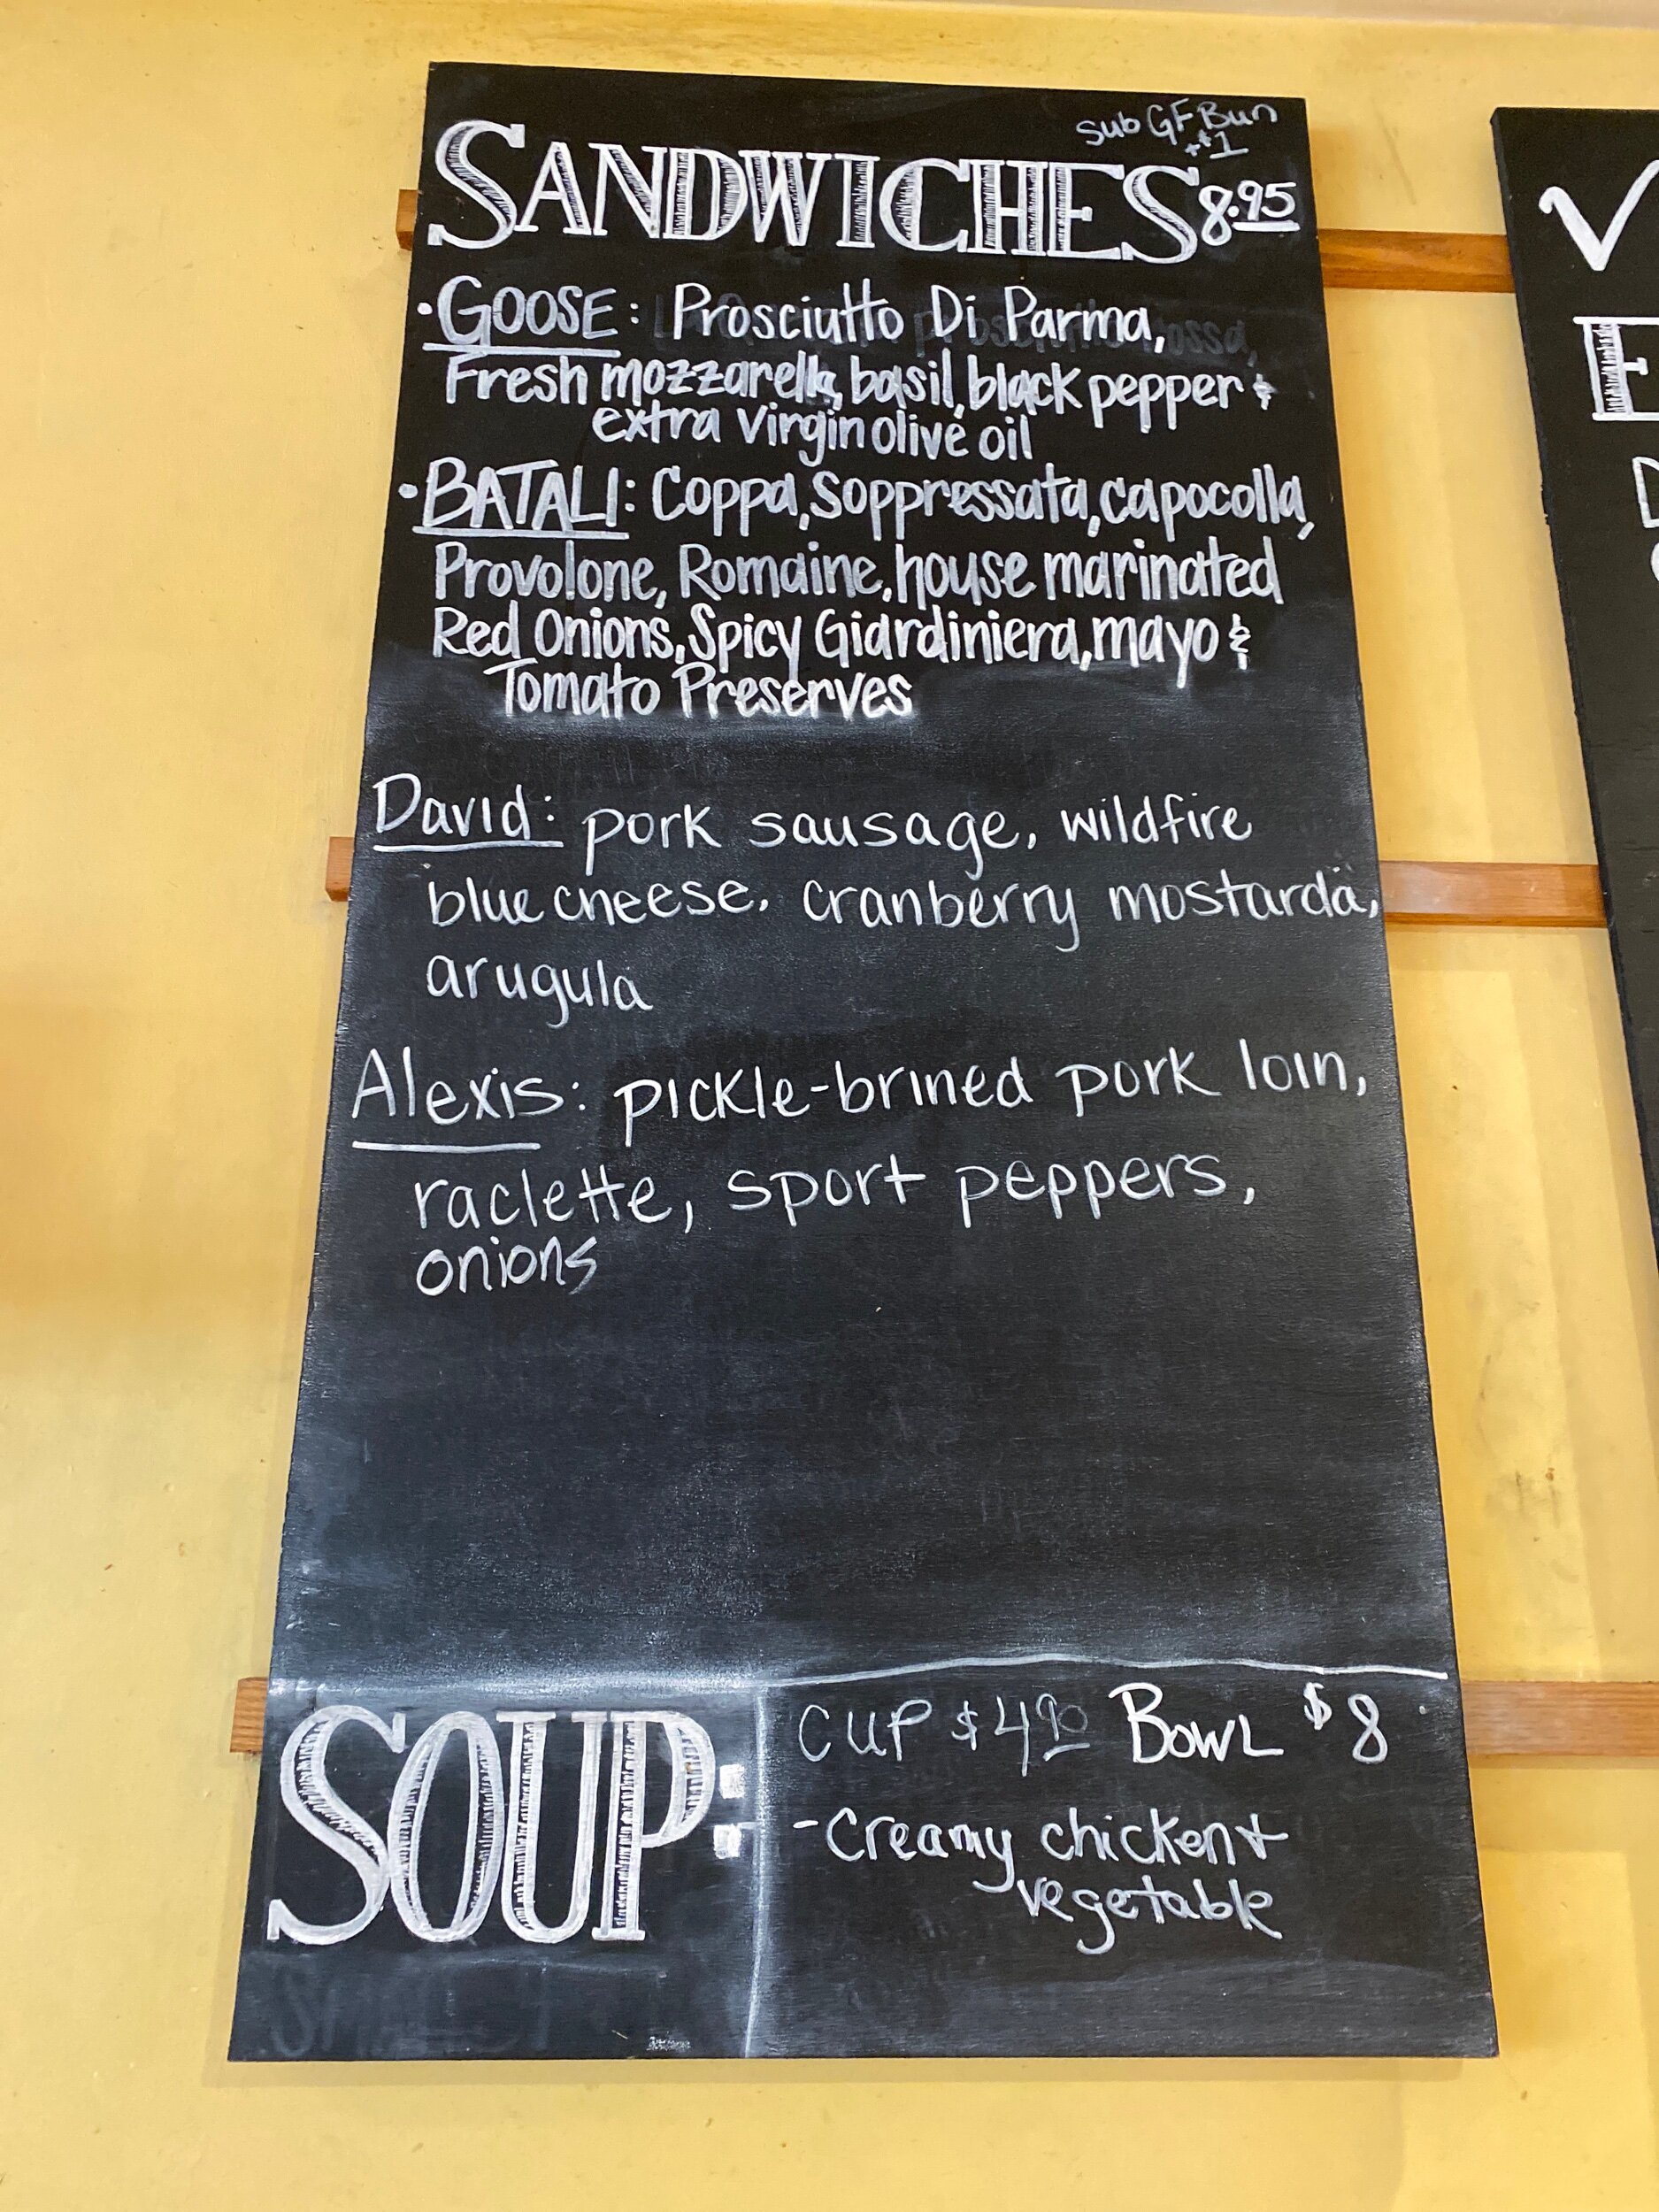 sub GF Bun
+$1
SANDWICHES 8.95
• GOOSE: Prosciutto Di Parma,
Fresh mozzarella, basil, black pepper &
extra virgin olive oil
• BATALI: Coppa, Soppressata, capocolla,
Provolone, Romaine, house marinated
Red Onions, Spicy Giardiniera, mayo &
Tomato Preserves
David: pork sausage, wildfire
blue cheese, cranberry mostarda,
arugula
Alexis: pickle-brined pork loin,
raclette, sport peppers,
onions
SOUP:
CUP $4 BOWL $8
- Creamy chicken +
vegetable